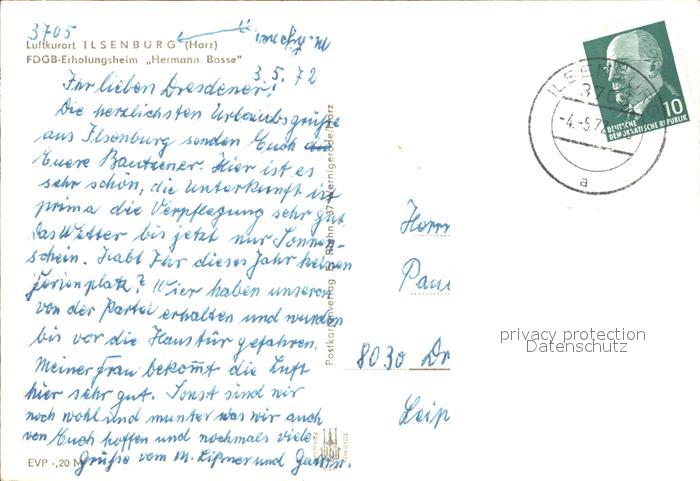 3705
Luftkurort ILSENBURG (Harz)
FDGB-Erholungsheim „Hermann Basse"
3.5.72
Ihr lieben Dresdener!
Die herzlichsten Urlaubsgrüße
aus Ilsenburg senden Euch
Euere Bautzener. Hier ist es
sehr schön, die Unterkunft ist
prima die Verpflegung sehr gut.
Das Wetter bis jetzt nur Sonnen-
schein. Habt Ihr dieses Jahr keinen
Ferienplatz? Wier haben unseren
von der Partei erhalten und wurden
bis vor die Haustür gefahren.
Meiner Frau bekom̅t die Luft
hier sehr gut. Sonst sind wir
noch wohl und munter was wir auch
von Euch hoffen und nochmals viele
Grüße vom M. Lißner und Gattin.
EVP -,20 M
Postkartenverlag
37 Wernigerode/Harz
ILSENBURG
3705
-4.-5.72
a
10
DEUTSCHE
DEMOKRATISCHE REPUBLIK
Herrn
Paul
8030 Dr
Leip
privacy protection
Datenschutz